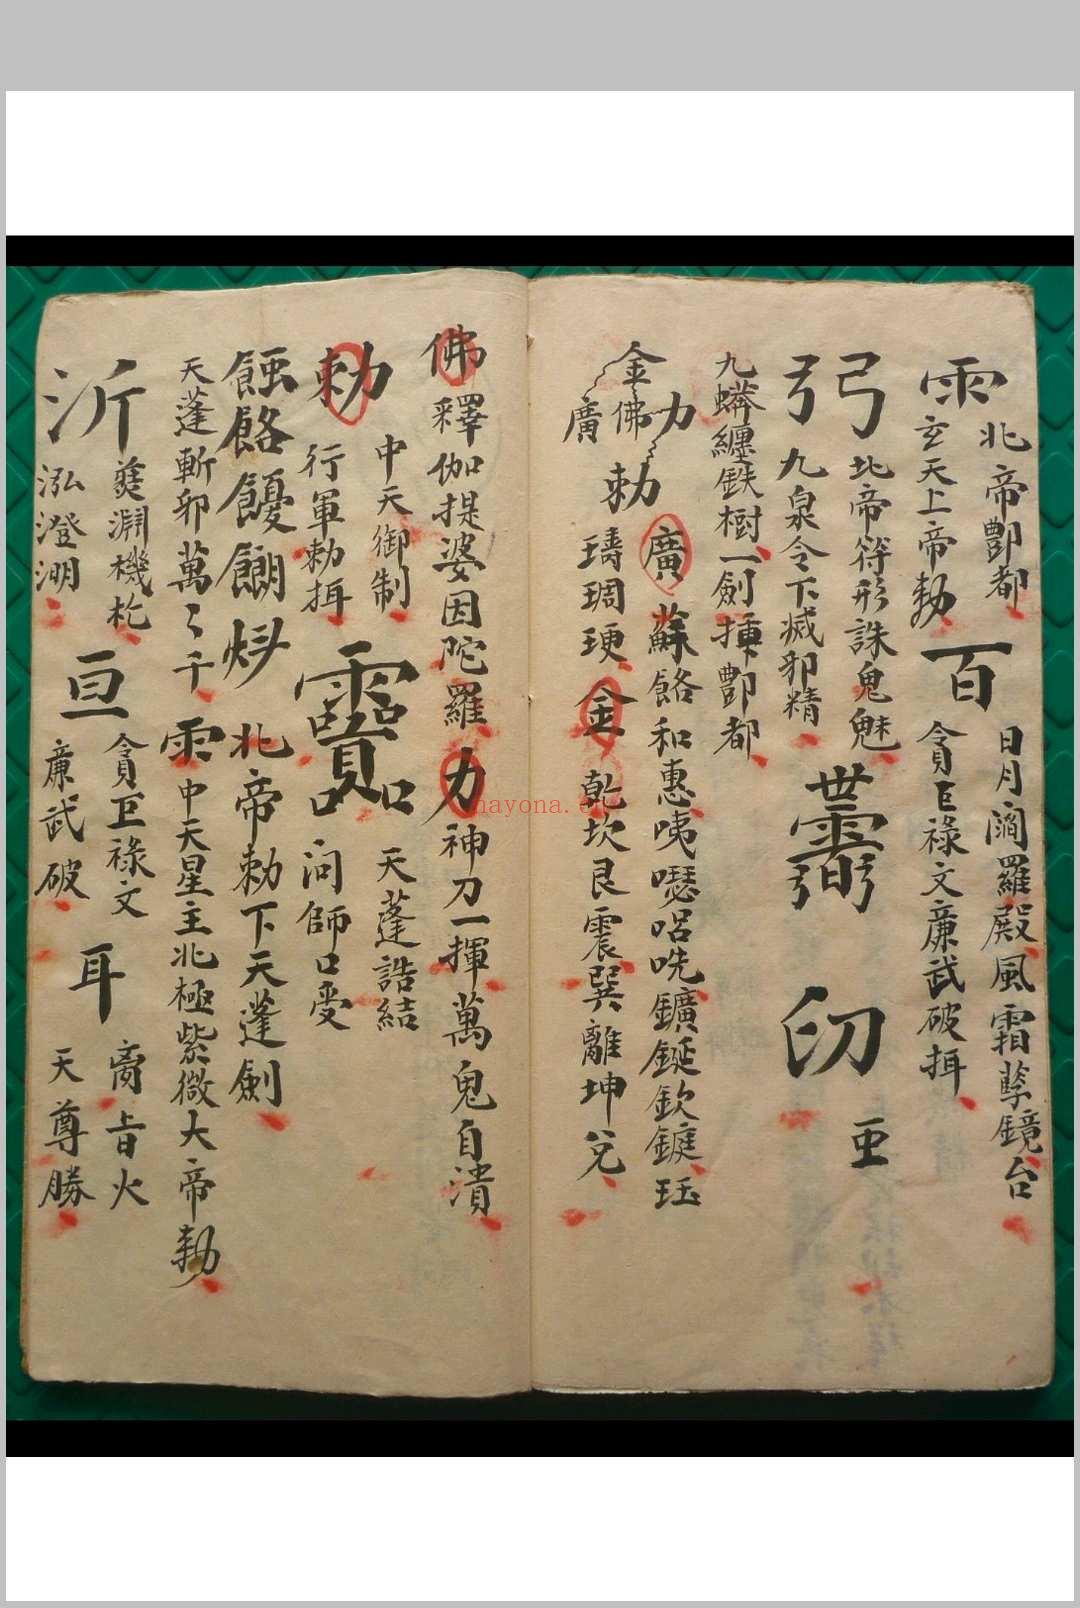 雨 北帝酆都
玄天上帝勅
百 日月 羅殿風霜孽鏡台
貪巨祿文廉武破揖
弓 北帝符形誅鬼魅
九泉令下滅邪精
印 亞
九蟒纏鉄樹一劍揮酆都
金 力
廣 佛
勅
廣 蘇 和惠咦 呂 鑛鋋欽 珏
璹琱 金 乾坎艮震巽離坤兌
佛釋伽提婆因陀羅 力 神刀一揮萬鬼自潰
勅 中天御制
行軍勅揖
天蓬誥結
口口 问師口受
北帝勅下天蓬劍
天蓬斬邪萬々千 雨 中天星主北極紫微大帝勅
沂
泓澄渊
亘 貪巨祿文
廉武破
耳 啇旨火
天尊勝
nayona.cn